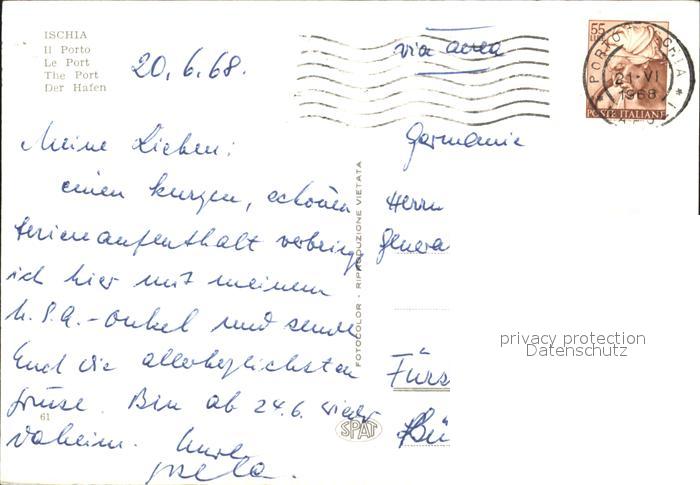 ISCHIA
Il Porto
Le Port
The Port
Der Hafen
20.6.68.
via aerea
55
LIRE
PORTO D'ISCHIA
21-VI
1968
POSTE ITALIANE
Meine Lieben!
einen kurzen, schönen
Ferienaufenthalt verbringe
ich hier mit meinem
U.S.A.-Onkel und sende
Euch die allerherzlichsten
Grüsse. Bin ab 24.6. wieder
daheim. Eure
61
FOTOCOLOR - RIPRODUZIONE VIETATA
SPAT
Germania
Herrn
Genera
Fürs
Bü
privacy protection
Datenschutz